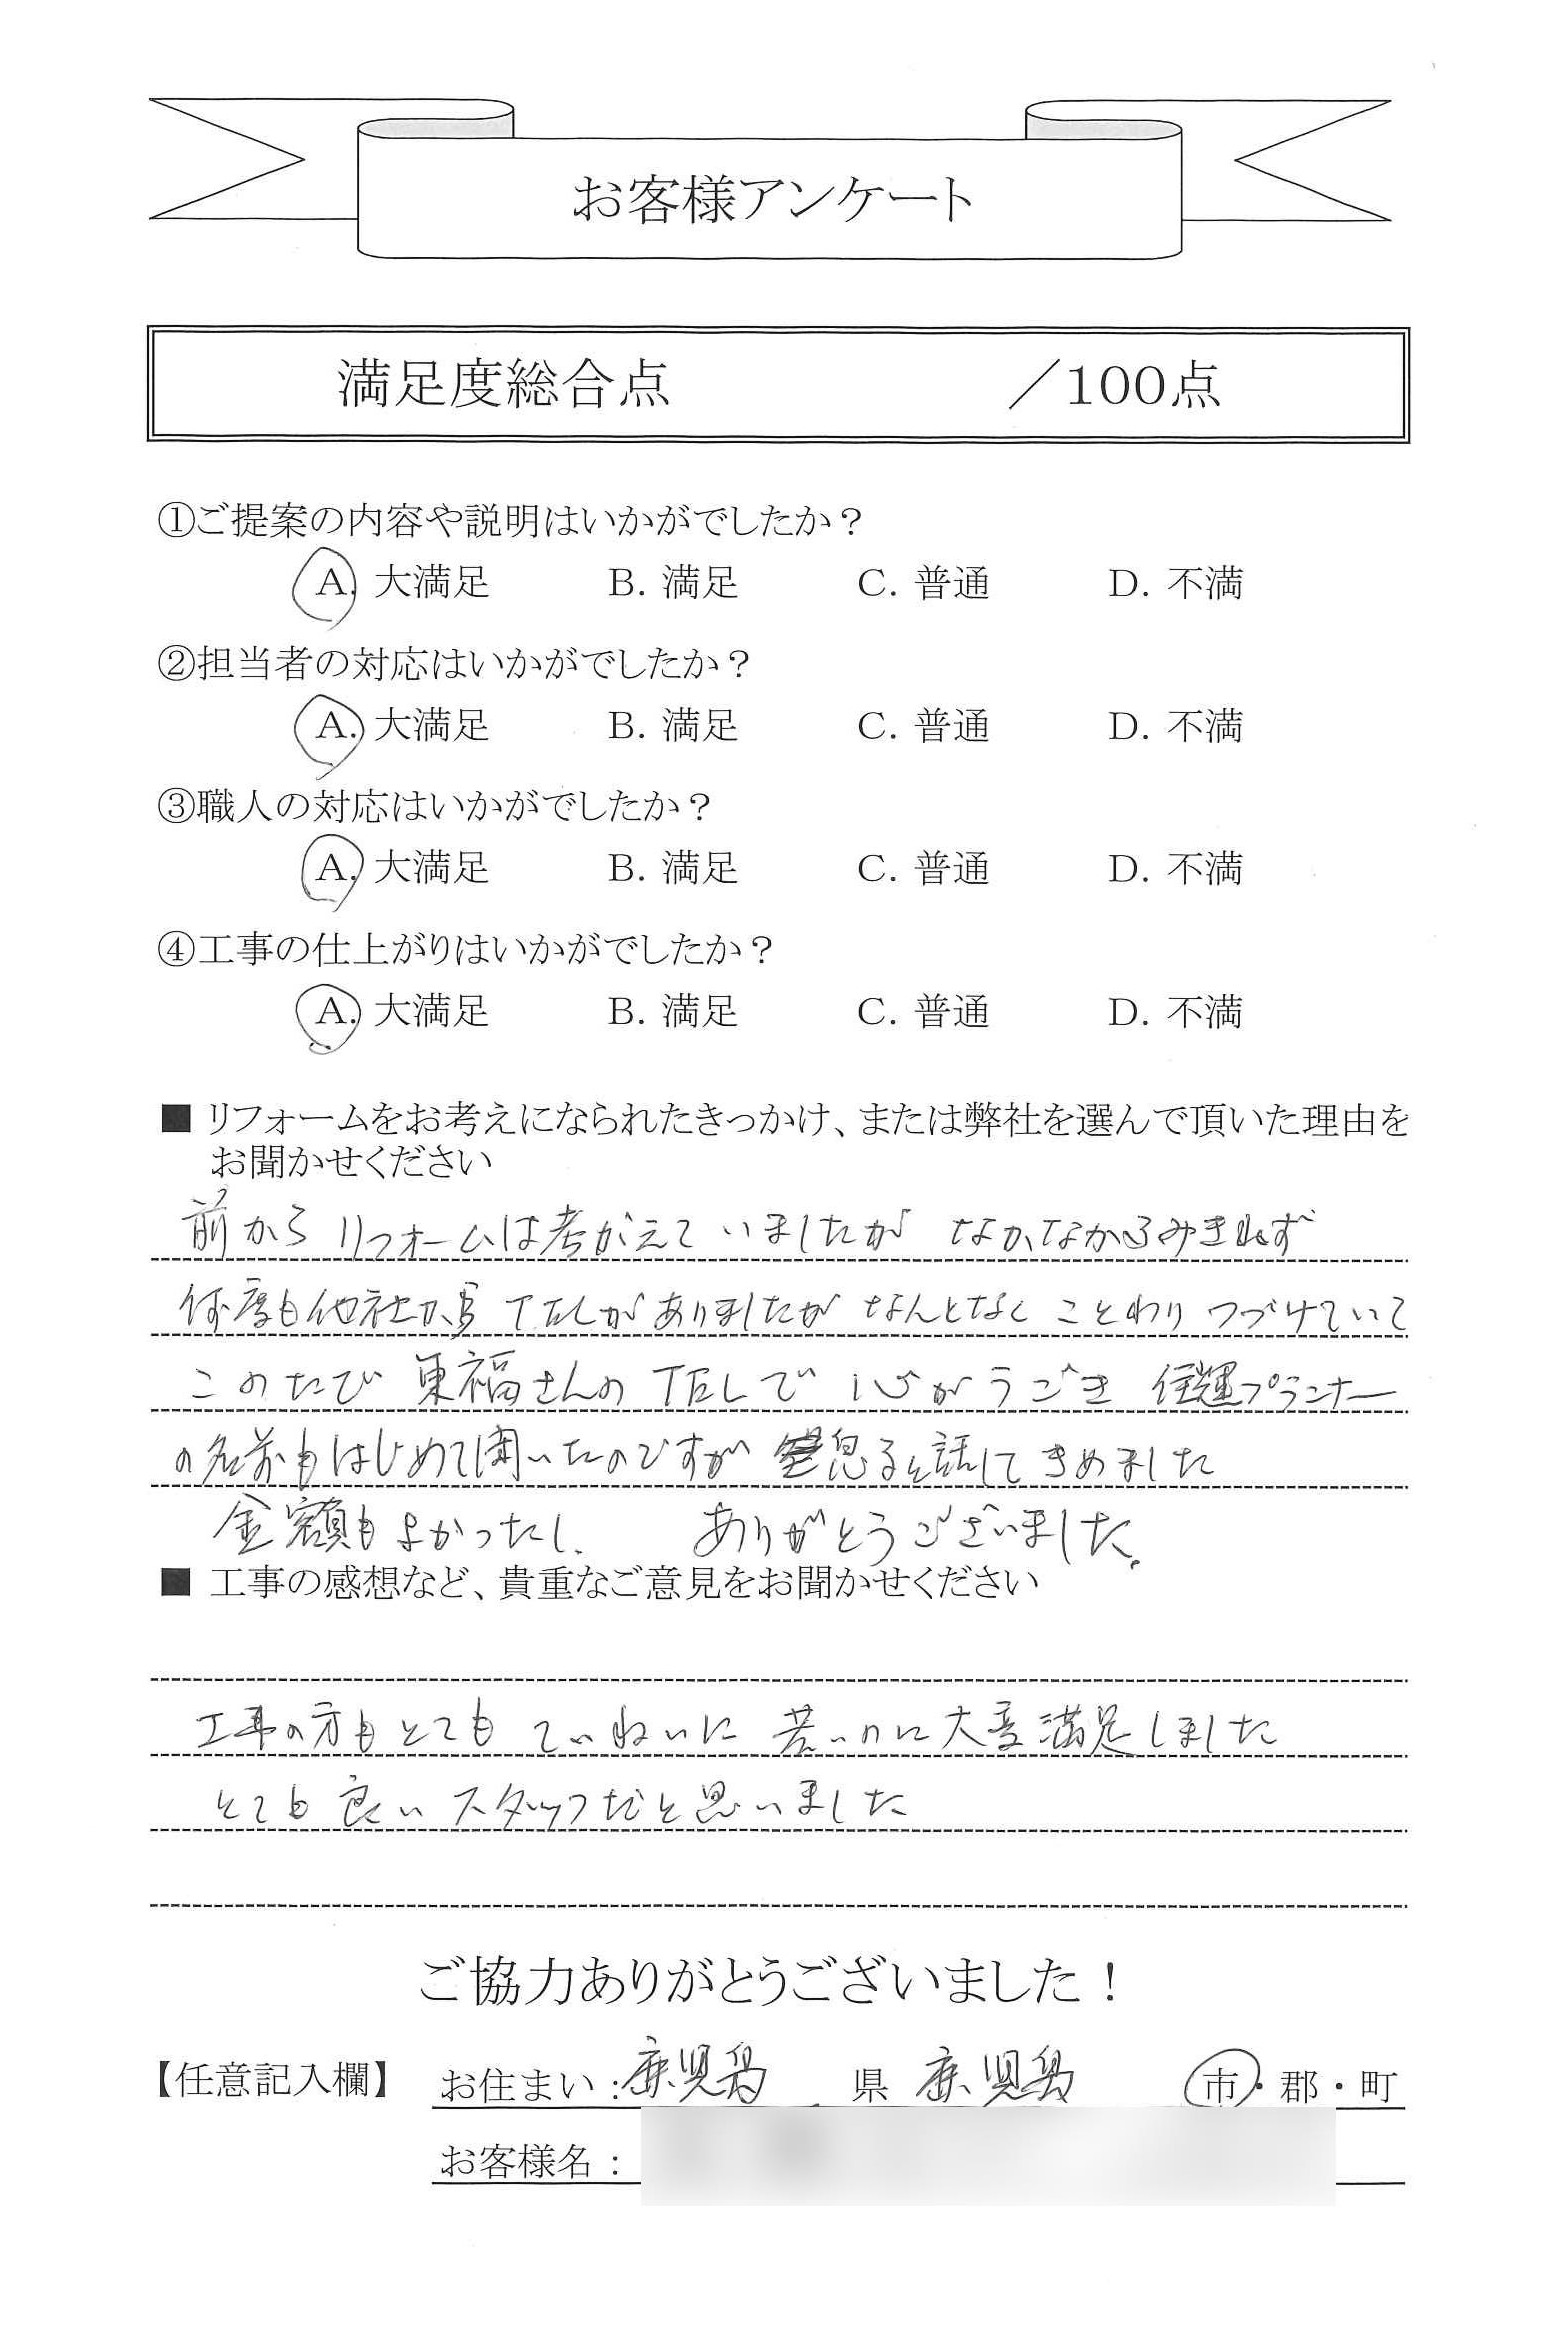 お客様アンケート
満足度総合点 ／100点
①ご提案の内容や説明はいかがでしたか？
A. 大満足 B. 満足 C. 普通 D. 不満
②担当者の対応はいかがでしたか？
A. 大満足 B. 満足 C. 普通 D. 不満
③職人の対応はいかがでしたか？
A. 大満足 B. 満足 C. 普通 D. 不満
④工事の仕上がりはいかがでしたか？
A. 大満足 B. 満足 C. 普通 D. 不満
■ リフォームをお考えになられたきっかけ、または弊社を選んで頂いた理由を
お聞かせください
前から リフォームは考がえていましたが なかなかふみきれず
何度も他社から TELがありましたが なんとなく ことわりつづけていて
このたび 東福さんの TELで 心がうごき 住輝プランナー
の名前もはじめて聞いたのですが 話して きめました
金額もよかったし、 ありがとうございました。
■ 工事の感想など、貴重なご意見をお聞かせください
工事の方もとても ていねいに 若いのに大変満足しました
とても良い スタッフだと思いました
ご協力ありがとうございました！
【任意記入欄】 お住まい：鹿児島 県 鹿児島 市・郡・町
お客様名：